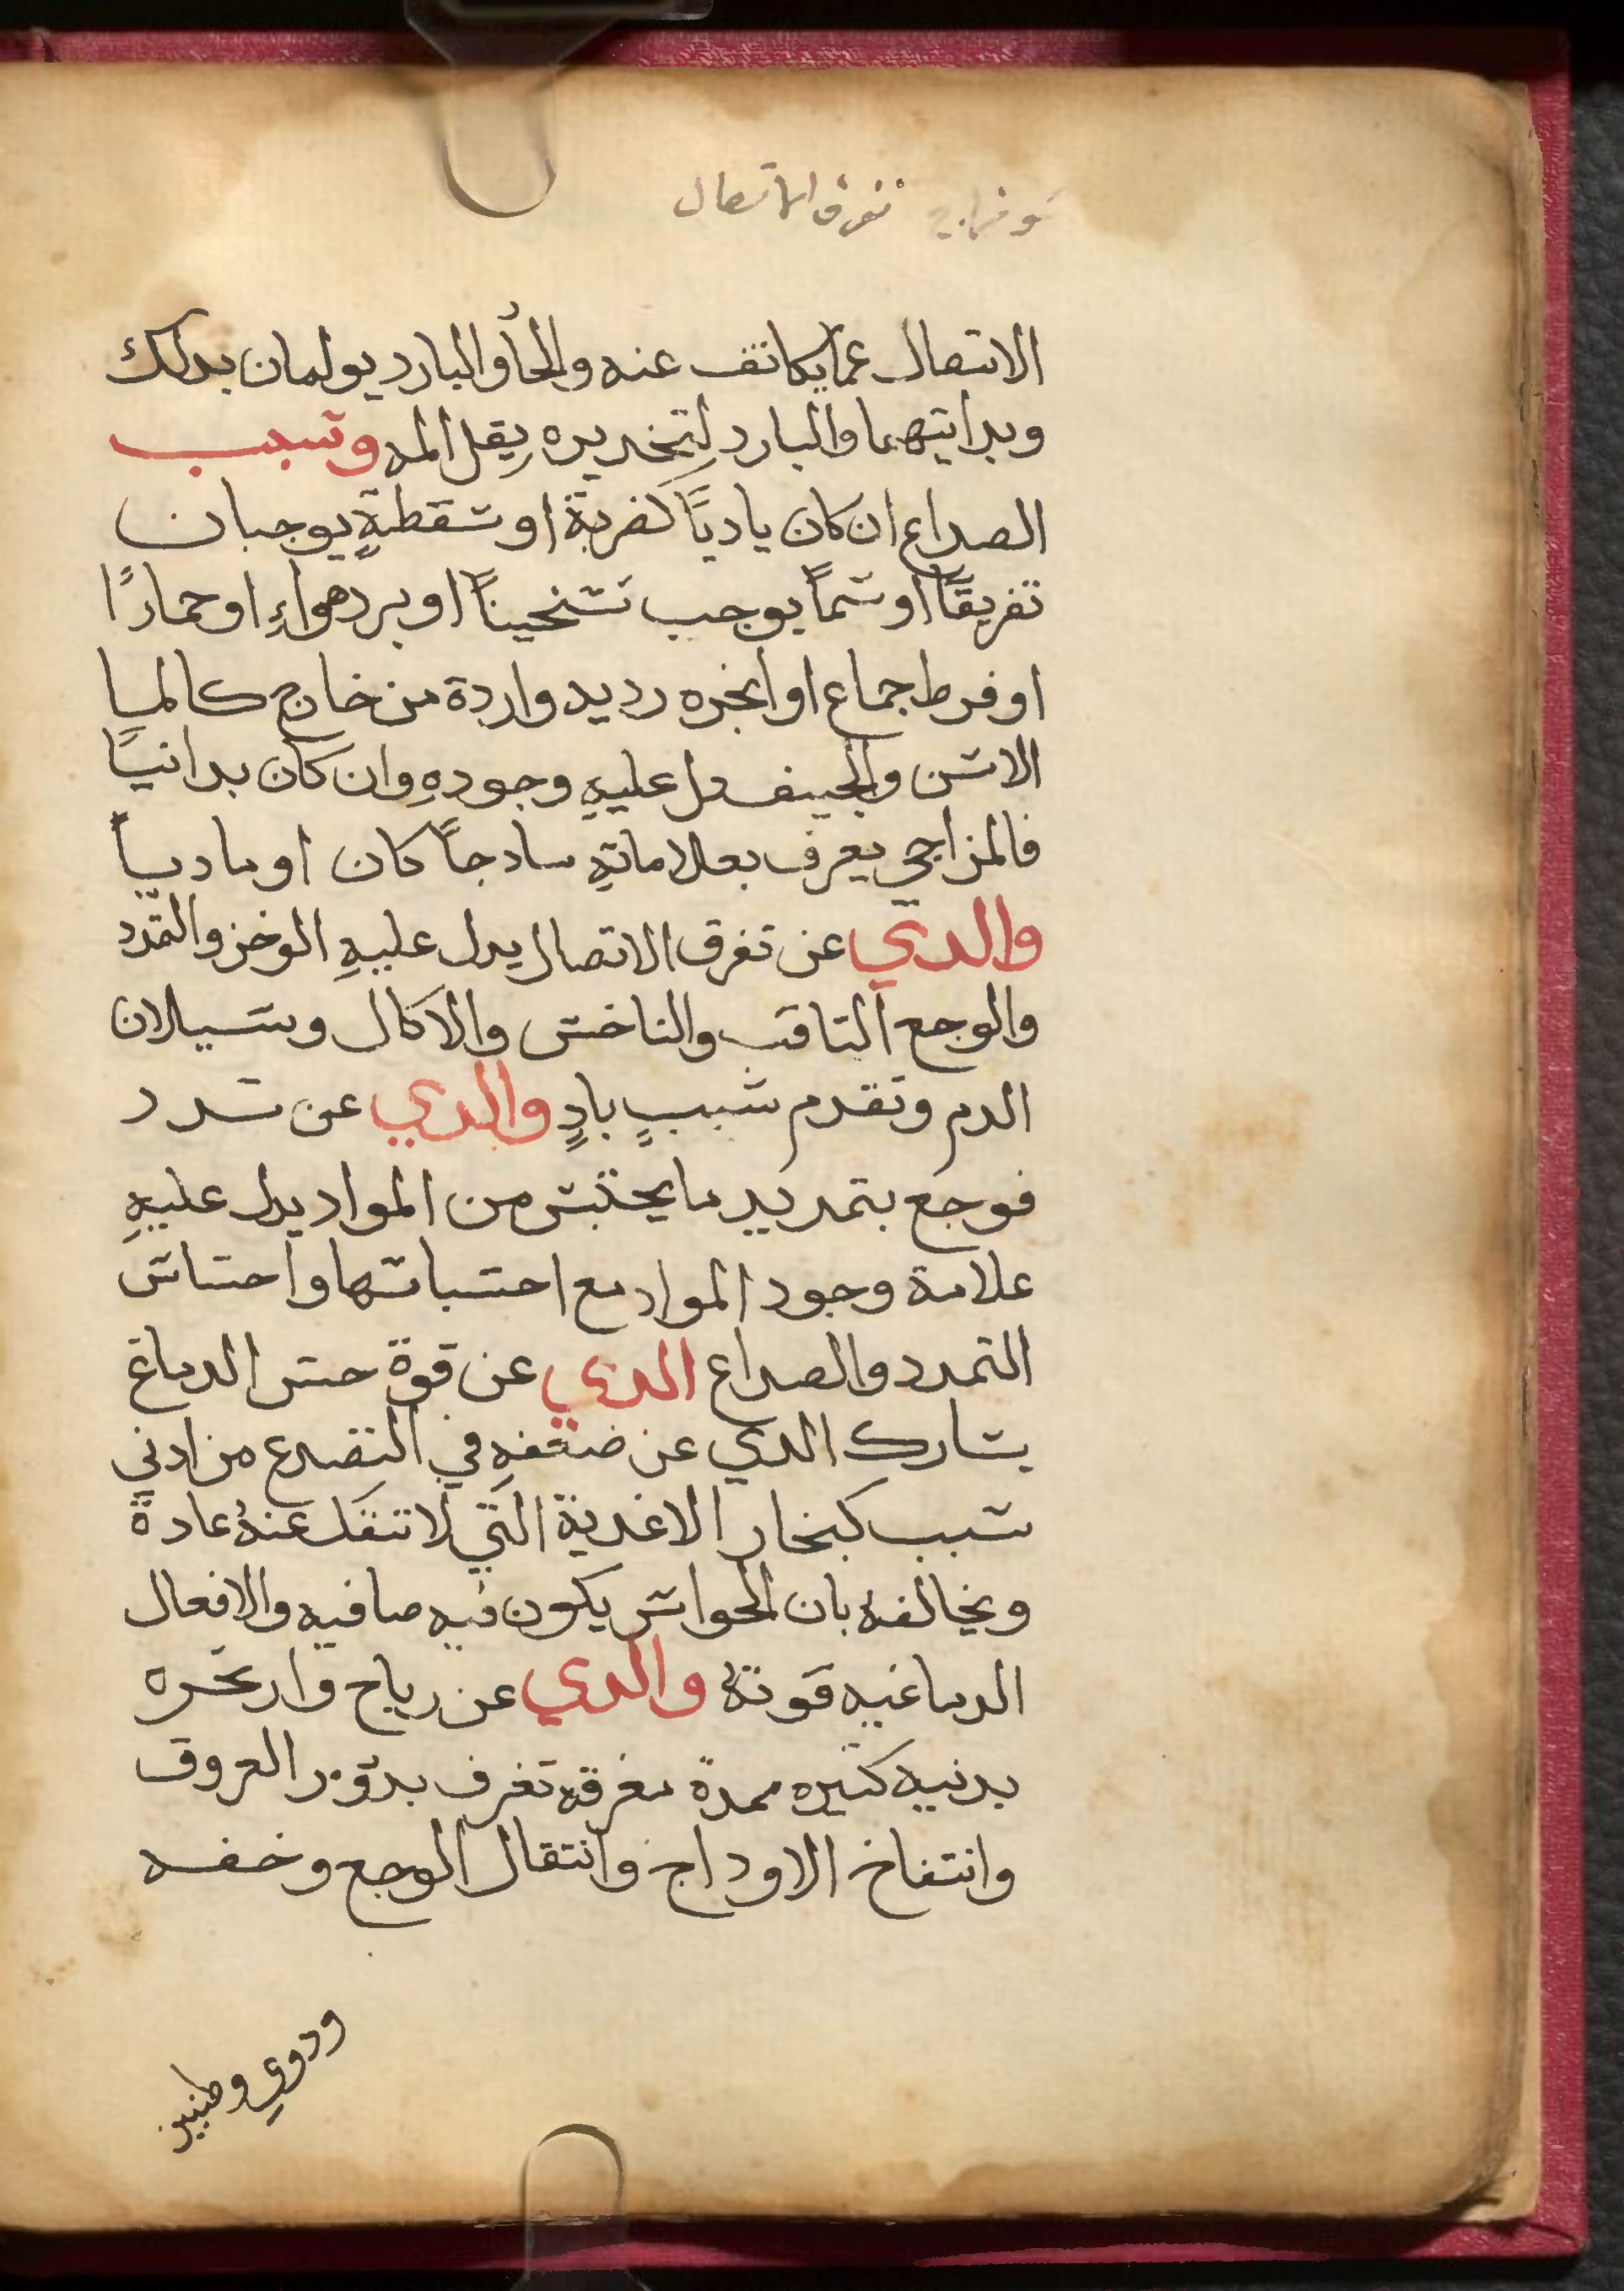 تفرق الاتصال
الاتصال عما يكاتف عنه والحار والبارد يولمان بدلك
وبداتيهما والبارد لتخديره يقل المه وشبب
الصداع ان كان ياديًا كضربة او شقطةٍ يوجبان
تفريقًا او شمًا يوجب تشخينًا او برد هواءٍ او حمارًا
او فرط جماع او ابخره رديه واردة من خارج كالميا
الاشن والجيف دل عليهِ وجودهِ وان كان بدانيًا
فالمزاجي يعرف بعلاماتهِ سادجًا كان او ماديًا
والدي عن تفرق الاتصال يدل عليهِ الوخز والتمدد
والوجع التاقب والناخش والاكال وشيلان
الدم وتقدم شببٍ بادٍ والدي عن شدد
فوجع بتمديد ما يحتبش من المواد يدل عليهِ
علامة وجود المواد مع احتباشها واحشاش
التمدد والصداع الدي عن قوة حش الدماغ
يشارك الدي عن ضعفهِ في التصدع من ادني
شبب كبخار الاغدية التي لا تنفك عنهُ عادةً
ويخالفهُ بان الحواش يكون فيه صافيه والافعال
الدماغيه قويهٌ والدي عن رياح وابخره
بدنيه كتيره ممدة مفرقه تعرف بدرور العروق
وانتفاخ الاوداج وانتقال الوجع وخفه
ودوي وطنين